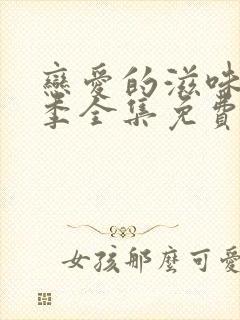 戀愛的滋味
季全集免費
女孩那麼可愛